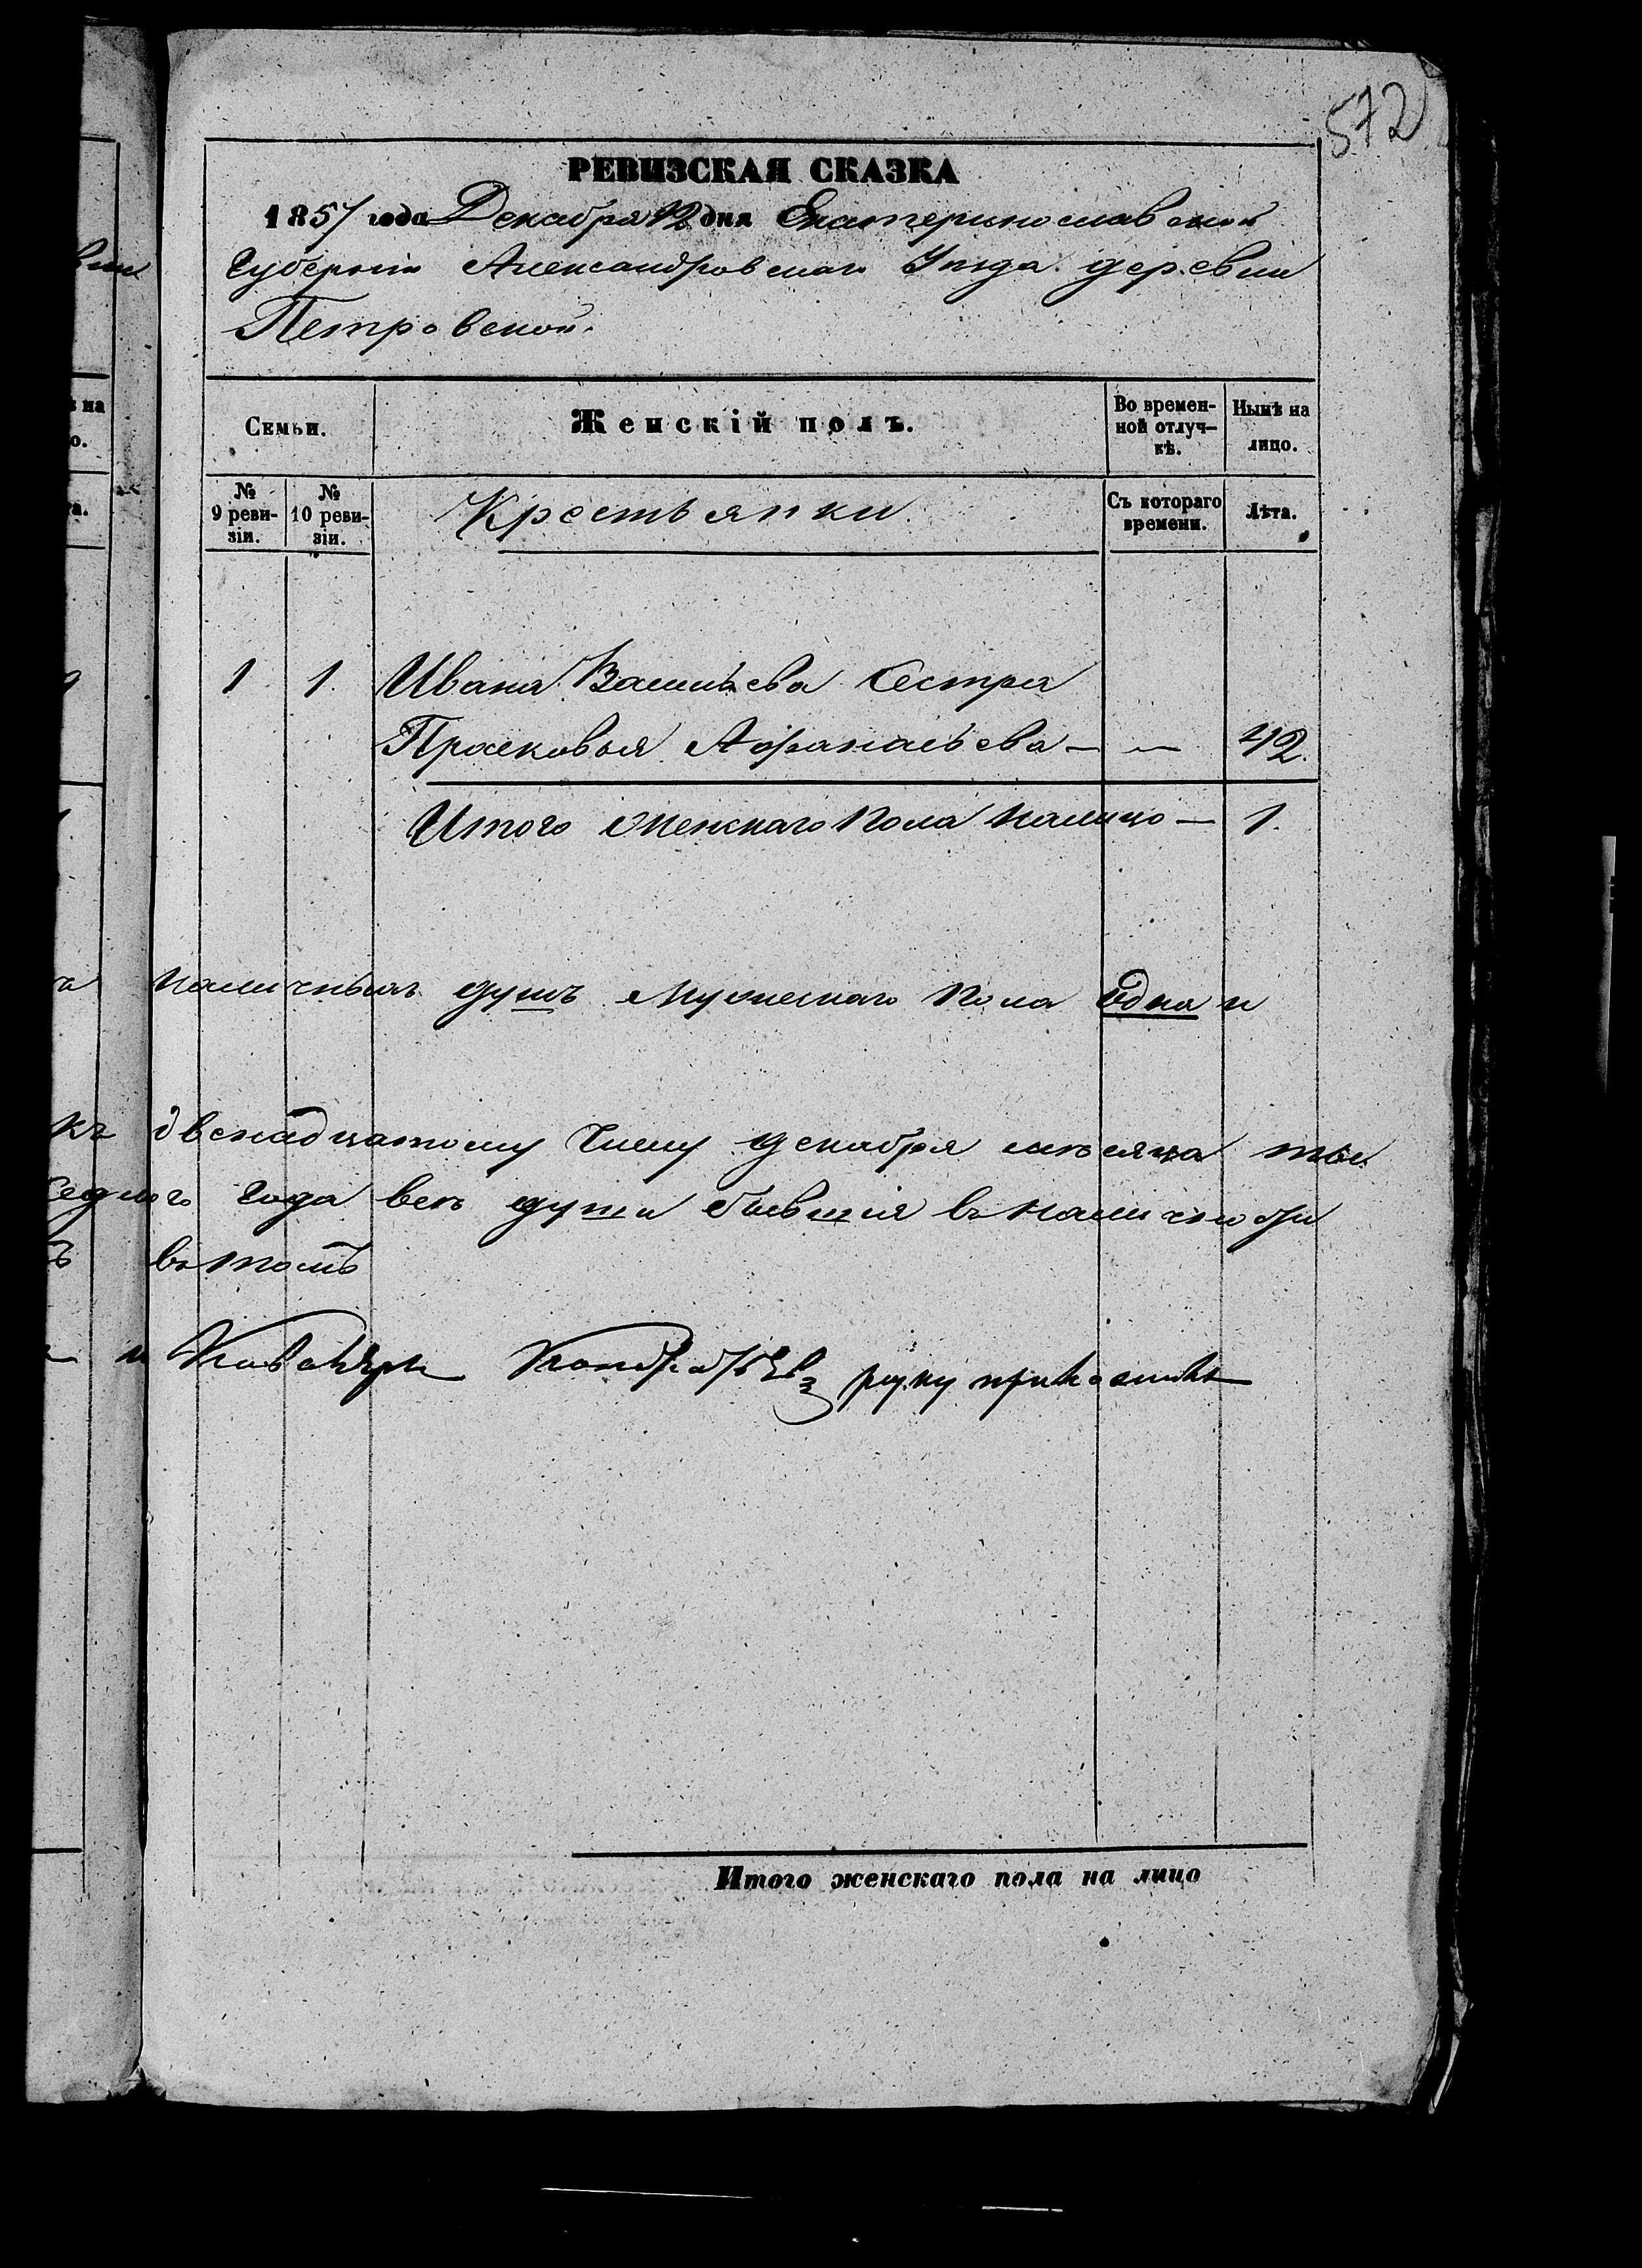 572
РЕВИЗСКАЯ СКАЗКА
1857 года Декабря 12 дня Екатеринославской
Губернiи Александровскаго Уѣзда деревни
Петровской.
Семьи.
Женскій полъ.
Во времен-
ной отлуч-
кѣ.
Нынѣ на
лицо.
№
9 реви-
зіи.
№
10 реви-
зіи.
Крестьянки
Съ котораго
времени.
Лѣта.
1 1. Ивана Васильева Сестра
Прасковья Афанасьева — — 42.
Итого Женскаго Пола налицо — 1.
наличныхъ душъ Мужескаго Пола одна и
къ двенадцатому Числу декабря мѣсяца тыс.
Седмого Года всѣ души бывшія въ наличности
въ томъ
руку приложилъ
Итого женскаго пола на лицо